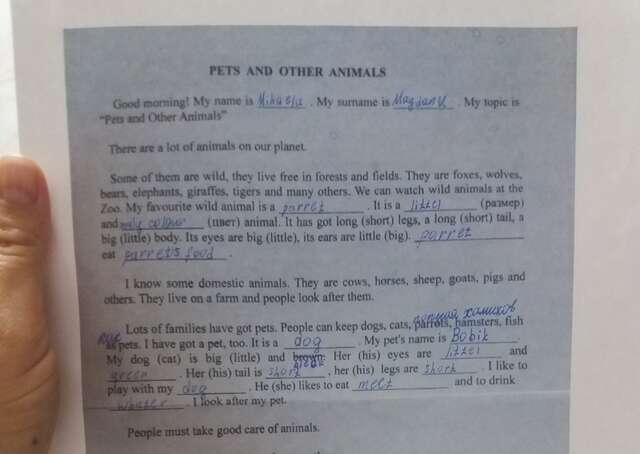 PETS AND OTHER ANIMALS
Good morning! My name is Mihaela. My surname is Magdanyk. My topic is
"Pets and Other Animals"
There are a lot of animals on our planet.
Some of them are wild, they live free in forests and fields. They are foxes, wolves,
bears, elephants, giraffes, tigers and many others. We can watch wild animals at the
Zoo. My favourite wild animal is a parret. It is a littel (размер)
and colour (цвет) animal. It has got long (short) legs, a long (short) tail, a
big (little) body. Its eyes are big (little), its ears are little (big). parret
eat parret's food.
I know some domestic animals. They are cows, horses, sheep, goats, pigs and
others. They live on a farm and people look after them.
хамиков
Lots of families have got pets. People can keep dogs, cats, parrots, hamsters, fish
as pets. I have got a pet, too. It is a dog. My pet's name is Bobik.
My dog (cat) is big (little) and brown. Her (his) eyes are littel and
green. Her (his) tail is short, her (his) legs are short. I like to
play with my dog. He (she) likes to eat meet and to drink
whater. I look after my pet.
People must take good care of animals.